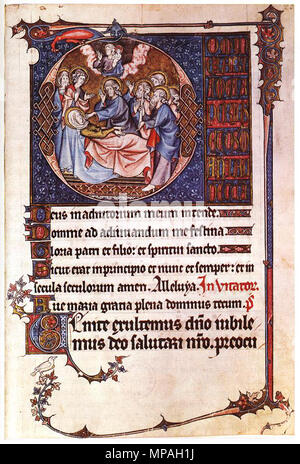 Deus in adiutorium meum intende.
Domine ad adiuvandum me festina
Gloria patri et filio: et spiritui sancto.
Sicut erat in principio et nunc et semper: et in
secula seculorum amen. Alleluya. Invitator.
Aue maria gratia plena dominus tecum. p̄s
Venite exultemus dño iubile
mus deo salutari nr̄o. preocu
alamy stock photo